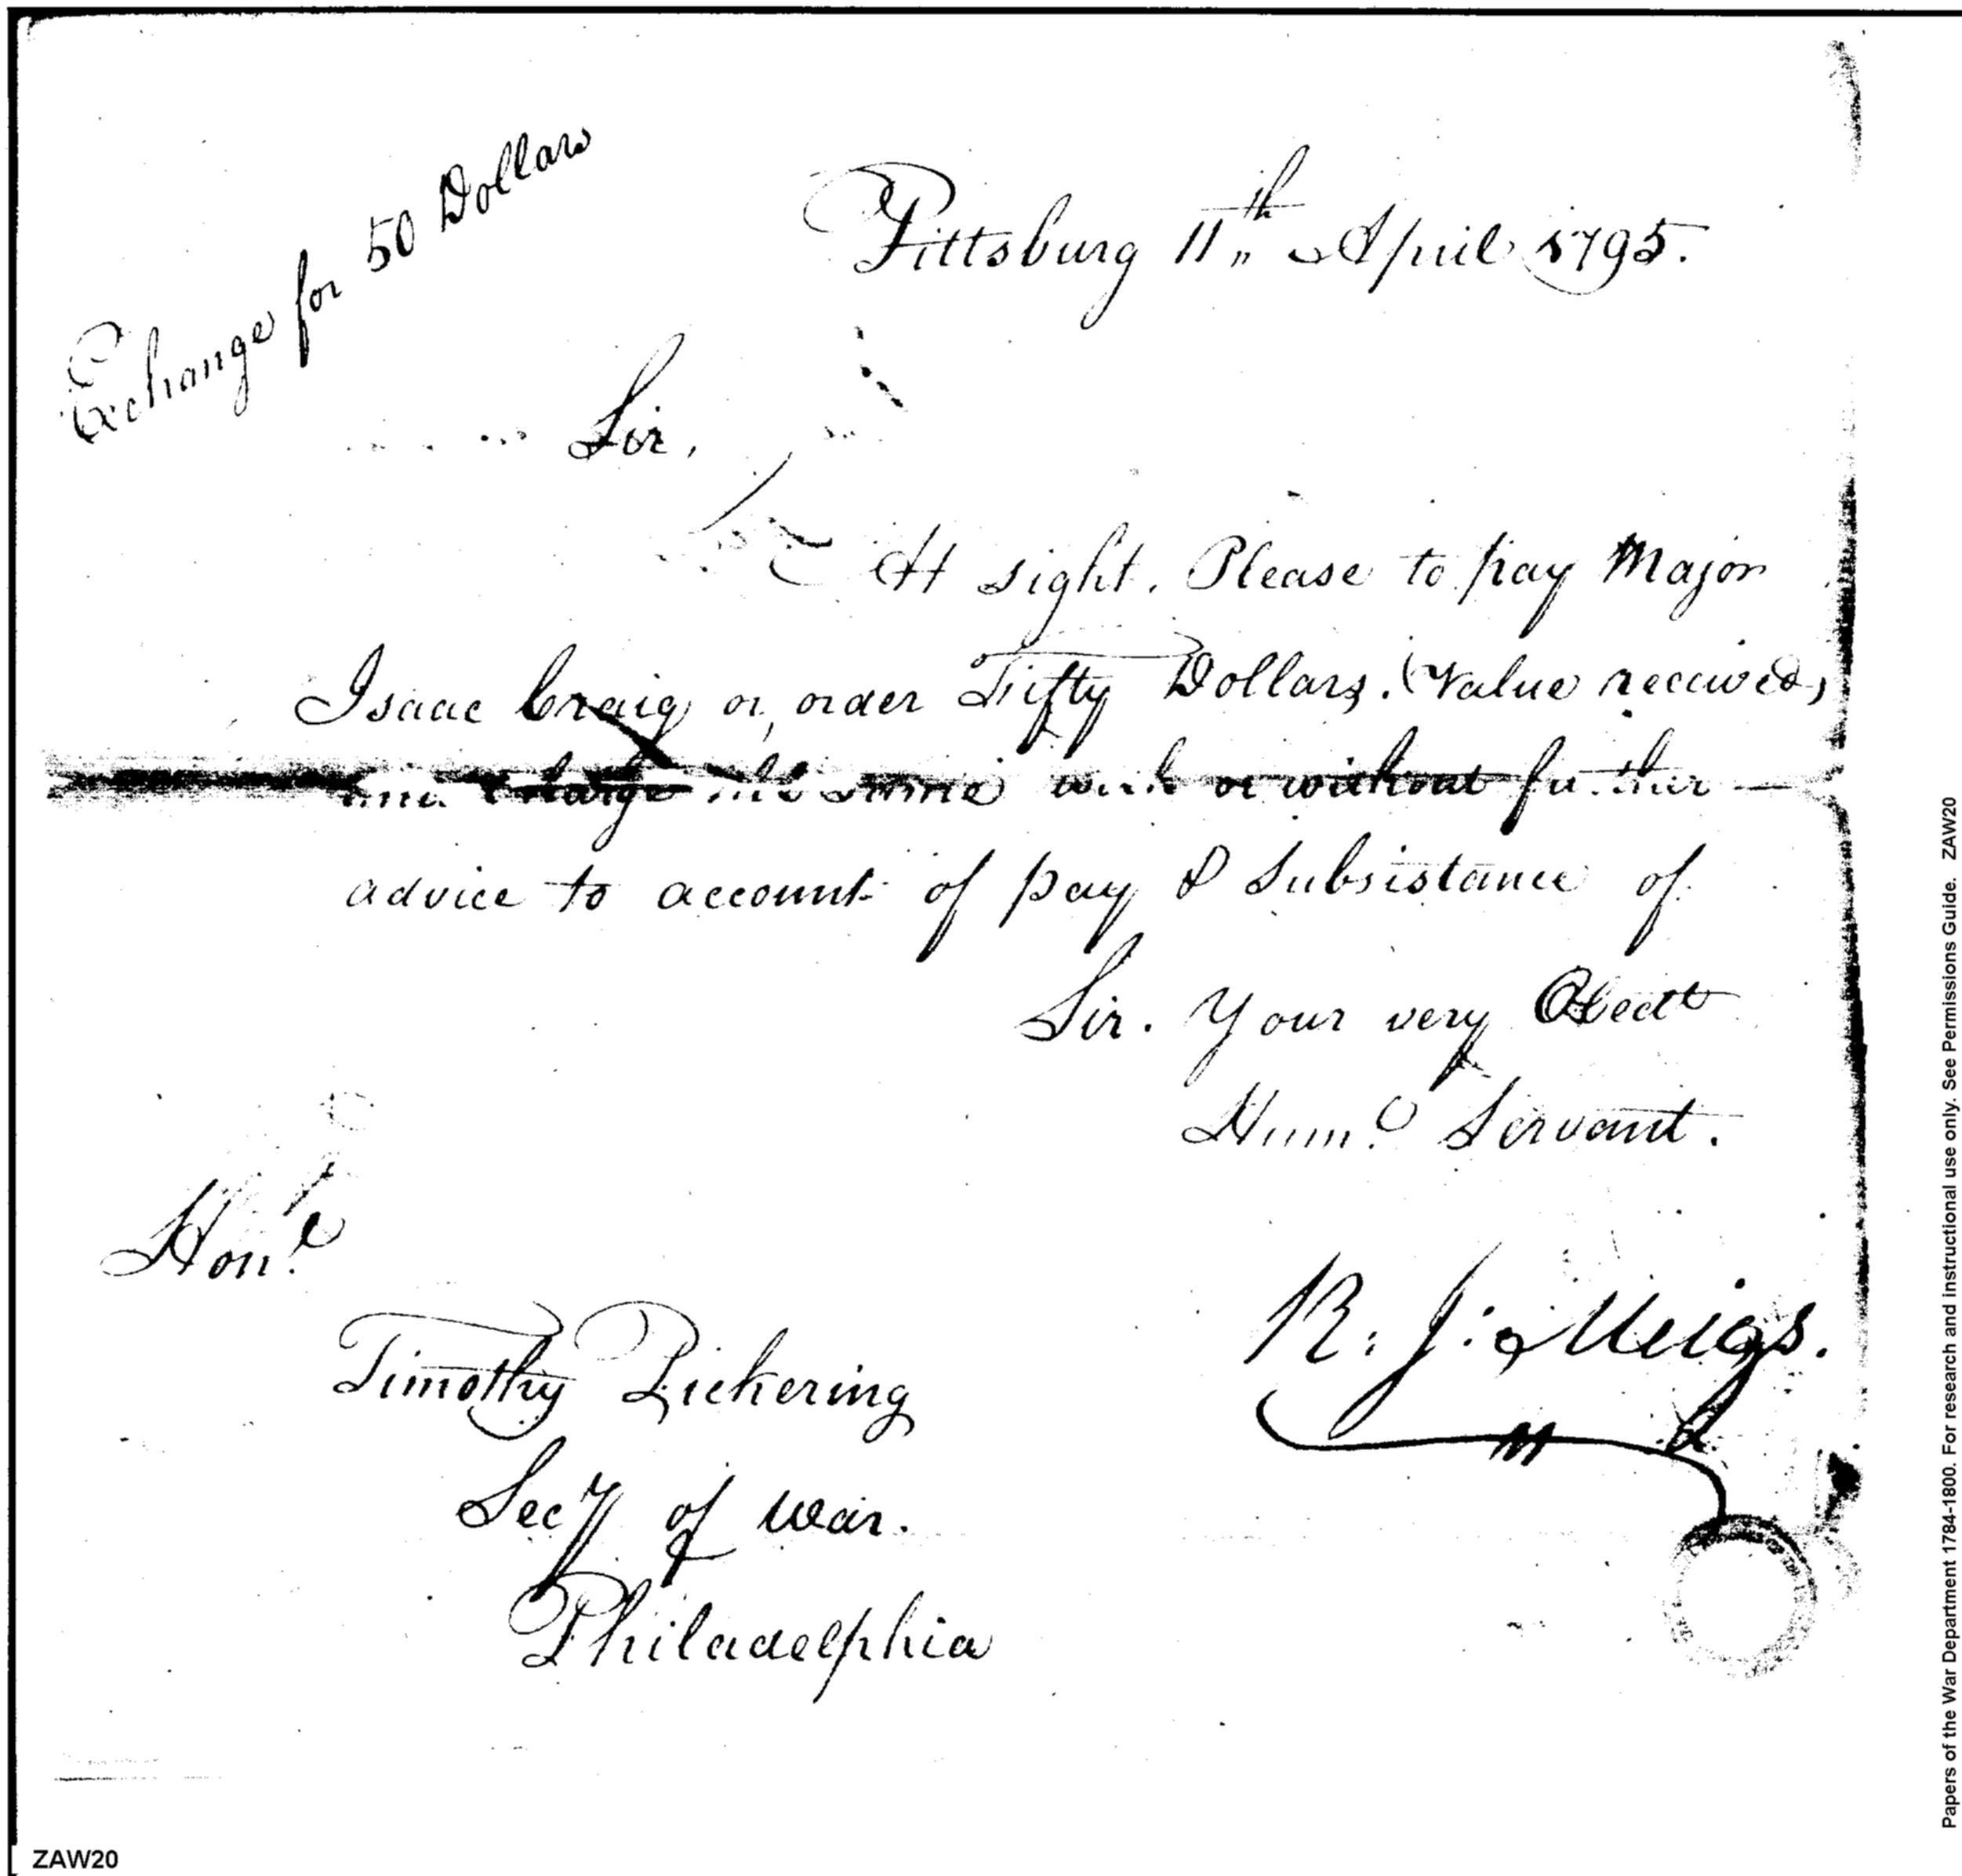 Exchange for 50 Dollars
Pittsburg 11th April 1795.
Sir,
At sight. Please to pay Major
Isaac Craig or order Fifty Dollars. Value received,
and charge the same with or without further —
advice to account of pay & Subsistance of
Sir. Your very Obedt
Hume Servant.
Honle
R. J. Meigs.
Timothy Pickering
Secy of War.
Philadelphia
Papers of the War Department 1784-1800. For research and instructional use only. See Permissions Guide. ZAW20
ZAW20